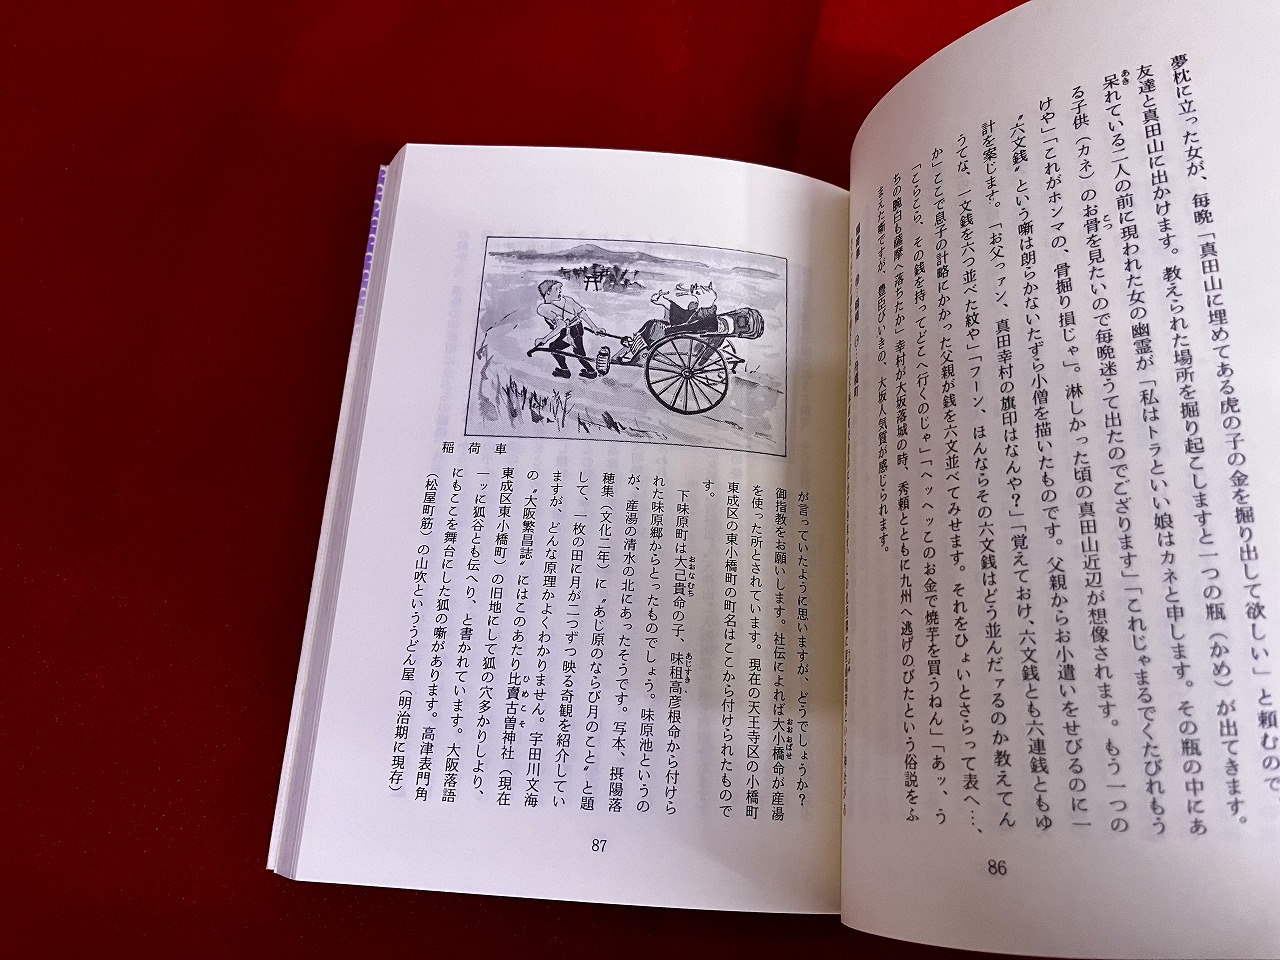 夢枕に立った女が、毎晩「真田山に埋めてある虎の子の金を掘り出して欲しい」と頼むので、
友達と真田山に出かけます。教えられた場所を掘り起こしますと一つの瓶（かめ）が出てきます。
呆れている二人の前に現われた女の幽霊が「私はトラといい娘はカネと申します。その瓶の中にあ
る子供（カネ）のお骨を見たいので毎晩迷うて出たのでござります」「これじゃまるでくたびれもう
けや」「これがホンマの、骨掘り損じゃ」。淋しかった頃の真田山近辺が想像されます。もう一つの
〝六文銭〟という噺は朗らかないたずら小僧を描いたものです。父親からお小遣いをせびるのに一
計を案じます。「お父っァン、真田幸村の旗印はなんや？」「覚えておけ、六文銭とも六連銭ともゆ
うてな、一文銭を六つ並べた紋や」「フーン、ほんならその六文銭はどう並んだァるのか教えてん
か」ここで息子の計略にかかった父親が銭を六文並べてみせます。それをひょいとさらって表へ…、
「こらこら、その銭を持ってどこへ行くのじゃ」「ヘッヘッこのお金で焼芋を買うねん」「あッ、う
ちの腕白も薩摩へ落ちたか」幸村が大坂落城の時、秀頼とともに九州へ逃げのびたという俗説をふ
まえた噺ですが、豊臣びいきの、大坂人気質が感じられます。
86
稲荷車
が言っていたように思いますが、どうでしょうか？
御指教をお願いします。社伝によれば大小橋命が産湯
を使った所とされています。現在の天王寺区の小橋町
東成区の東小橋町の町名はここから付けられたもので
す。
下味原町は大己貴命の子、味耜高彦根命から付けら
れた味原郷からとったものでしょう。味原池というの
が、産湯の清水の北にあったそうです。写本、摂陽落
穂集（文化二年）に〝あじ原のならび月のこと〟と題
して、一枚の田に月が二つずつ映る奇観を紹介してい
ますが、どんな原理かよくわかりません。宇田川文海
の〝大阪繁昌誌〟にはこのあたり比賣古曽神社（現在
東成区東小橋町）の旧地にして狐の穴多かりしより、
一ッに狐谷とも伝へり、と書かれています。大阪落語
にもここを舞台にした狐の噺があります。高津表門角
（松屋町筋）の山吹といううどん屋（明治期に現存）
87